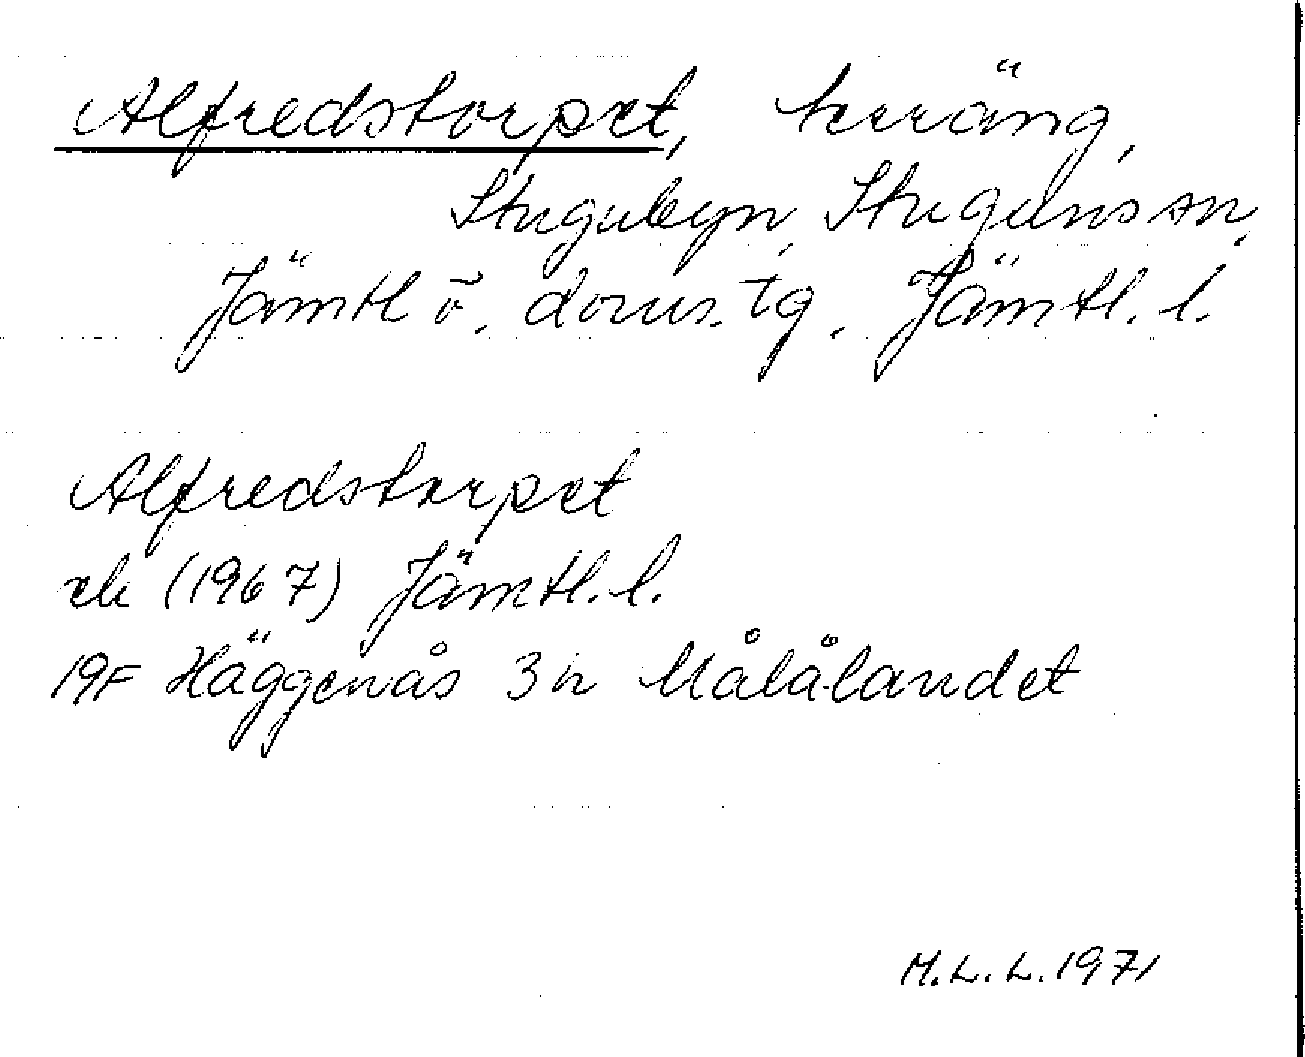 Alfredstorpet, terräng,
Stugubyn, Stuguns sn,
Jämtl ö. doms. tg. Jämtl. l.
Alfredstorpet
ek (1967) Jämtl. l.
19F Häggenås 3h Målålandet
M.L.L. 1971